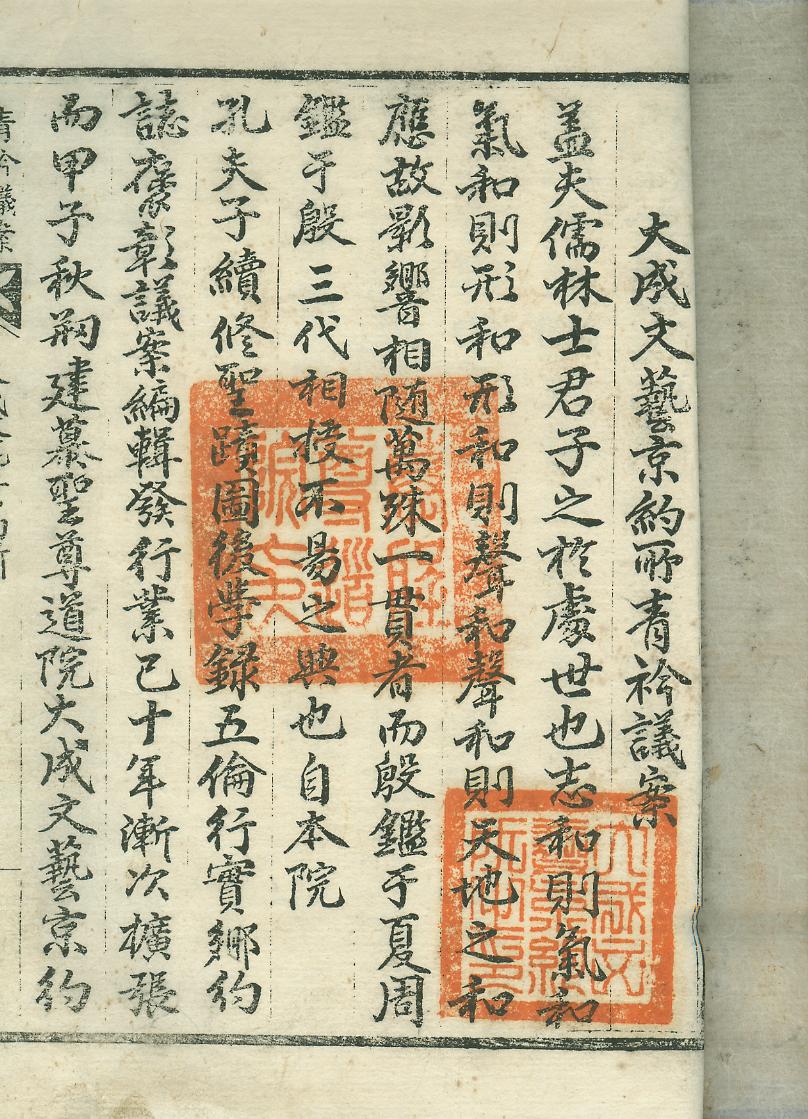 大成文藝京約所青衿議案
盖夫儒林士君子之於處世也志和則氣和
氣和則形和形和則聲和聲和則天地之和
應故影響相隨萬殊一貫者而殷鑑于夏周
鑑于殷三代相授不易之典也自本院
孔夫子續修聖蹟圖後学録五倫行實鄉約
誌褒彰議案編輯發行業已十年漸次擴張
而甲子秋刱建慕聖尊道院大成文藝京約
青衿議案